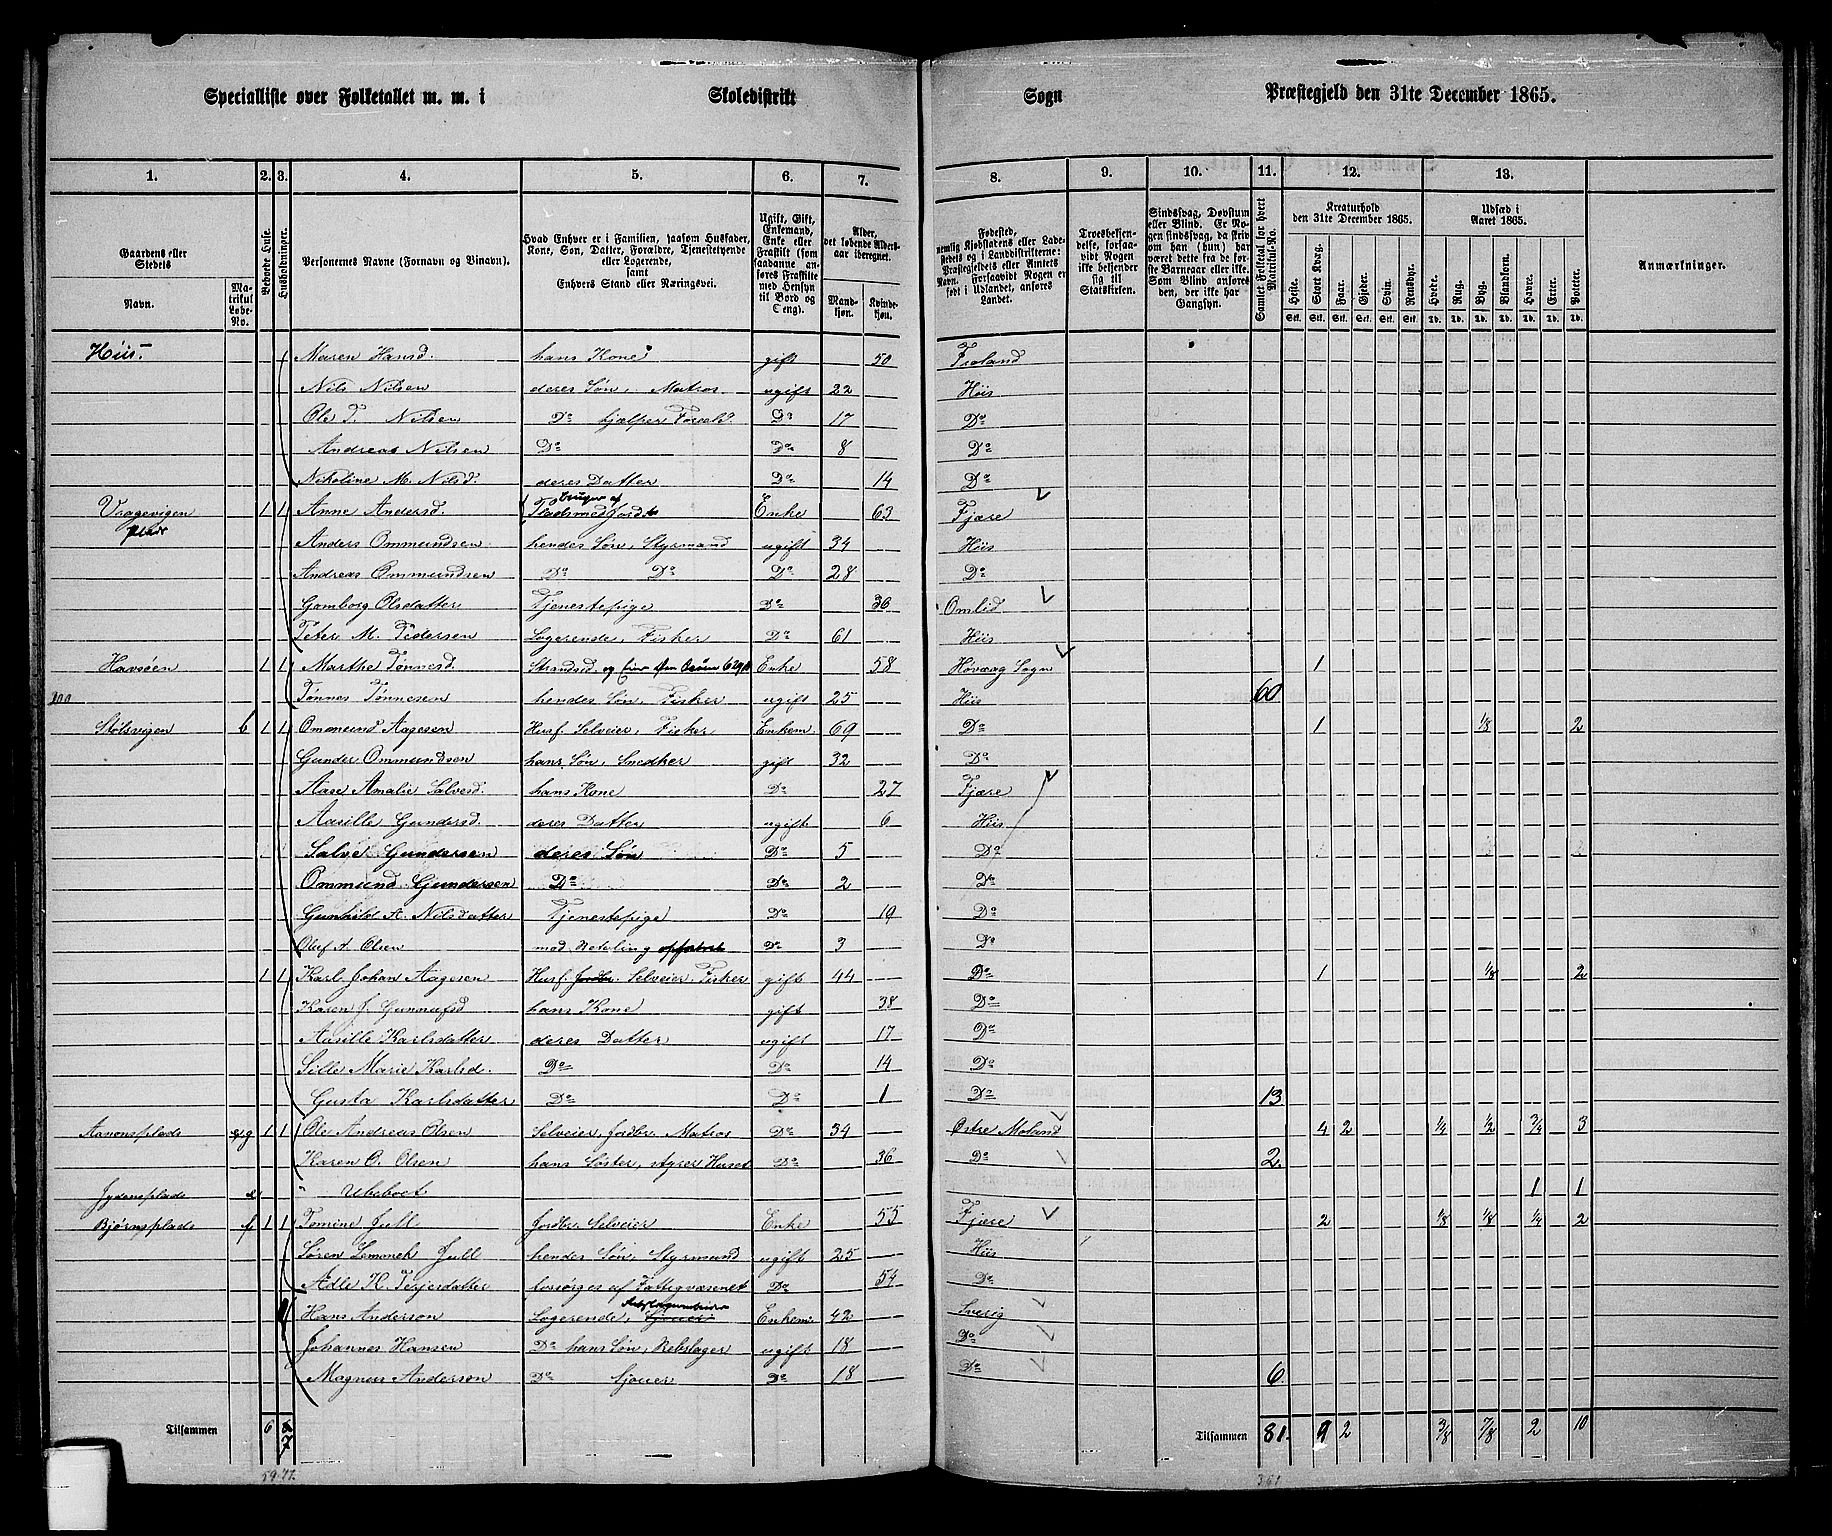 Specialliste over Folketallet m. m. i Skoledistrikt Sogn Præstegjeld den 31te December 1865.
1. 2. 3. 4. 5. 6. 7. 8. 9. 10. 11. 12. 13.
Gaardens eller Stedets
Navn.
Matrikul Løbe-No.
Beboede Huse.
Husholdninger.
Personernes Navne (Fornavn og Tilnavn).
Hvad Enhver er i Familien, saasom Husfader, Kone, Søn, Datter, Forældre, Tjenestetyende eller Logerende, samt Enhvers Stand eller Næringsvei.
Ugift, Gift, Enkemand, Enke eller Fraskilt (som saadanne anføres Fraskilte med Hensyn til Bord og Seng).
Alder, det løbende Alders-aar iberegnet.
Mand-kjøn. Kvinde-kjøn.
Fødested,
Troesbekjendelse, forsaavidt Nogen ikke bekjender sig til Statskirken.
Sindssvag, Døvstum eller Blind.
Samlet Folketal for hvert Matrikul-No.
Kreaturhold den 31te December 1865.
Heste. Stort Kvæg. Faar. Gjeder. Svin. Rensdyr.
Udsæd i Aaret 1865.
Hvede. Rug. Byg. Blandkorn. Havre. Erter. Poteter.
Anmærkninger.
Hiis Maren Hansd. hans Kone gift 50 Fioland
Nils Nilsen deres Søn, Matros ugift 22 Hiis
Ole T. Nilsen Do hjælper Foræld. Do 17 Do
Andreas Nilsen Do Do 8 Do
Nikoline M. Nilsd. deres Datter Do 14 Do
Vragevigen plads 1 1 Anne Andersd. bruger af Plads med Jord Enke 63 Fjære
Anders Ommundsen hendes Søn, Styrmand ugift 34 Hiis
Andreas Ommundsen Do Do Do 28 Do
Gamborg Olsdatter Tjenestepige Do 36 Omlid
Peter M. Pedersen Logerende, Fisker Do 61 Hiis
Havsøen 1 1 Marthe Tønnesd. Strandsid. og Enke 58 Høvaag Sogn 1
Tønnes Tønnesen hendes Søn, Fisker ugift 25 Hiis 60
Stølsvigen b 1 1 Ommund Aagesen Husf. Selveier, Fisker Enkem. 69 Do 1 1/8 2
Gunder Ommundsen hans Søn, Snedker gift 32 Do
Aase Amalie Salvesd. hans Kone Do 27 Fjære
Aasille Gundersd. deres Datter ugift 6 Hiis
Salve Gundersen deres Søn Do 5 Do
Ommund Gundersen Do Do 2 Do
Gunhild A. Nilsdatter Tjenestepige Do 19 Do
Oluf A. Olsen mod Betaling opfostret Do 3 Do
1 1 Karl Johan Aagesen Husf. Jordbr. Selveier, Fisker gift 44 Do 1 1/8 2
Karen J. Gunnufsd hans Kone gift 38 Do
Aasille Karlsdatter deres Datter ugift 17 Do
Sille Marie Karlsd. Do Do 14 Do
Gusta Karlsdatter Do Do 1 Do 13
Aanonsplads 1 1 Ole Andreas Olsen Selveier, Jordbr. Matros Do 34 Østre Moland 4 2 1/4 1/2 3/4 3
Karen O. Olsen hans Søster, styrer Huset Do 36 Do 2
Jydensplads e Ubeboet 1 1
Bjørnsplads f 1 1 Tomine Jull Jordbr. Selveier Enke 55 Fjære 2 1/8 1/8 1/4 2
Søren Lemmek Jull hendes Søn, Styrmand ugift 25 Hiis
Adle K. Terjesdatter forsørges af Fattigvæsenet Do 54 Do
Hans Anderson Logerende, Enkem. 42 Sverig
Johannes Hansen Do hans Søn, Rebslager ugift 18 Do
Magnus Anderson Do Sjouer Do 18 Do 6
Tilsammen 6 7 Tilsammen 81. 9 2 3/8 7/8 2 10
59 77. 361